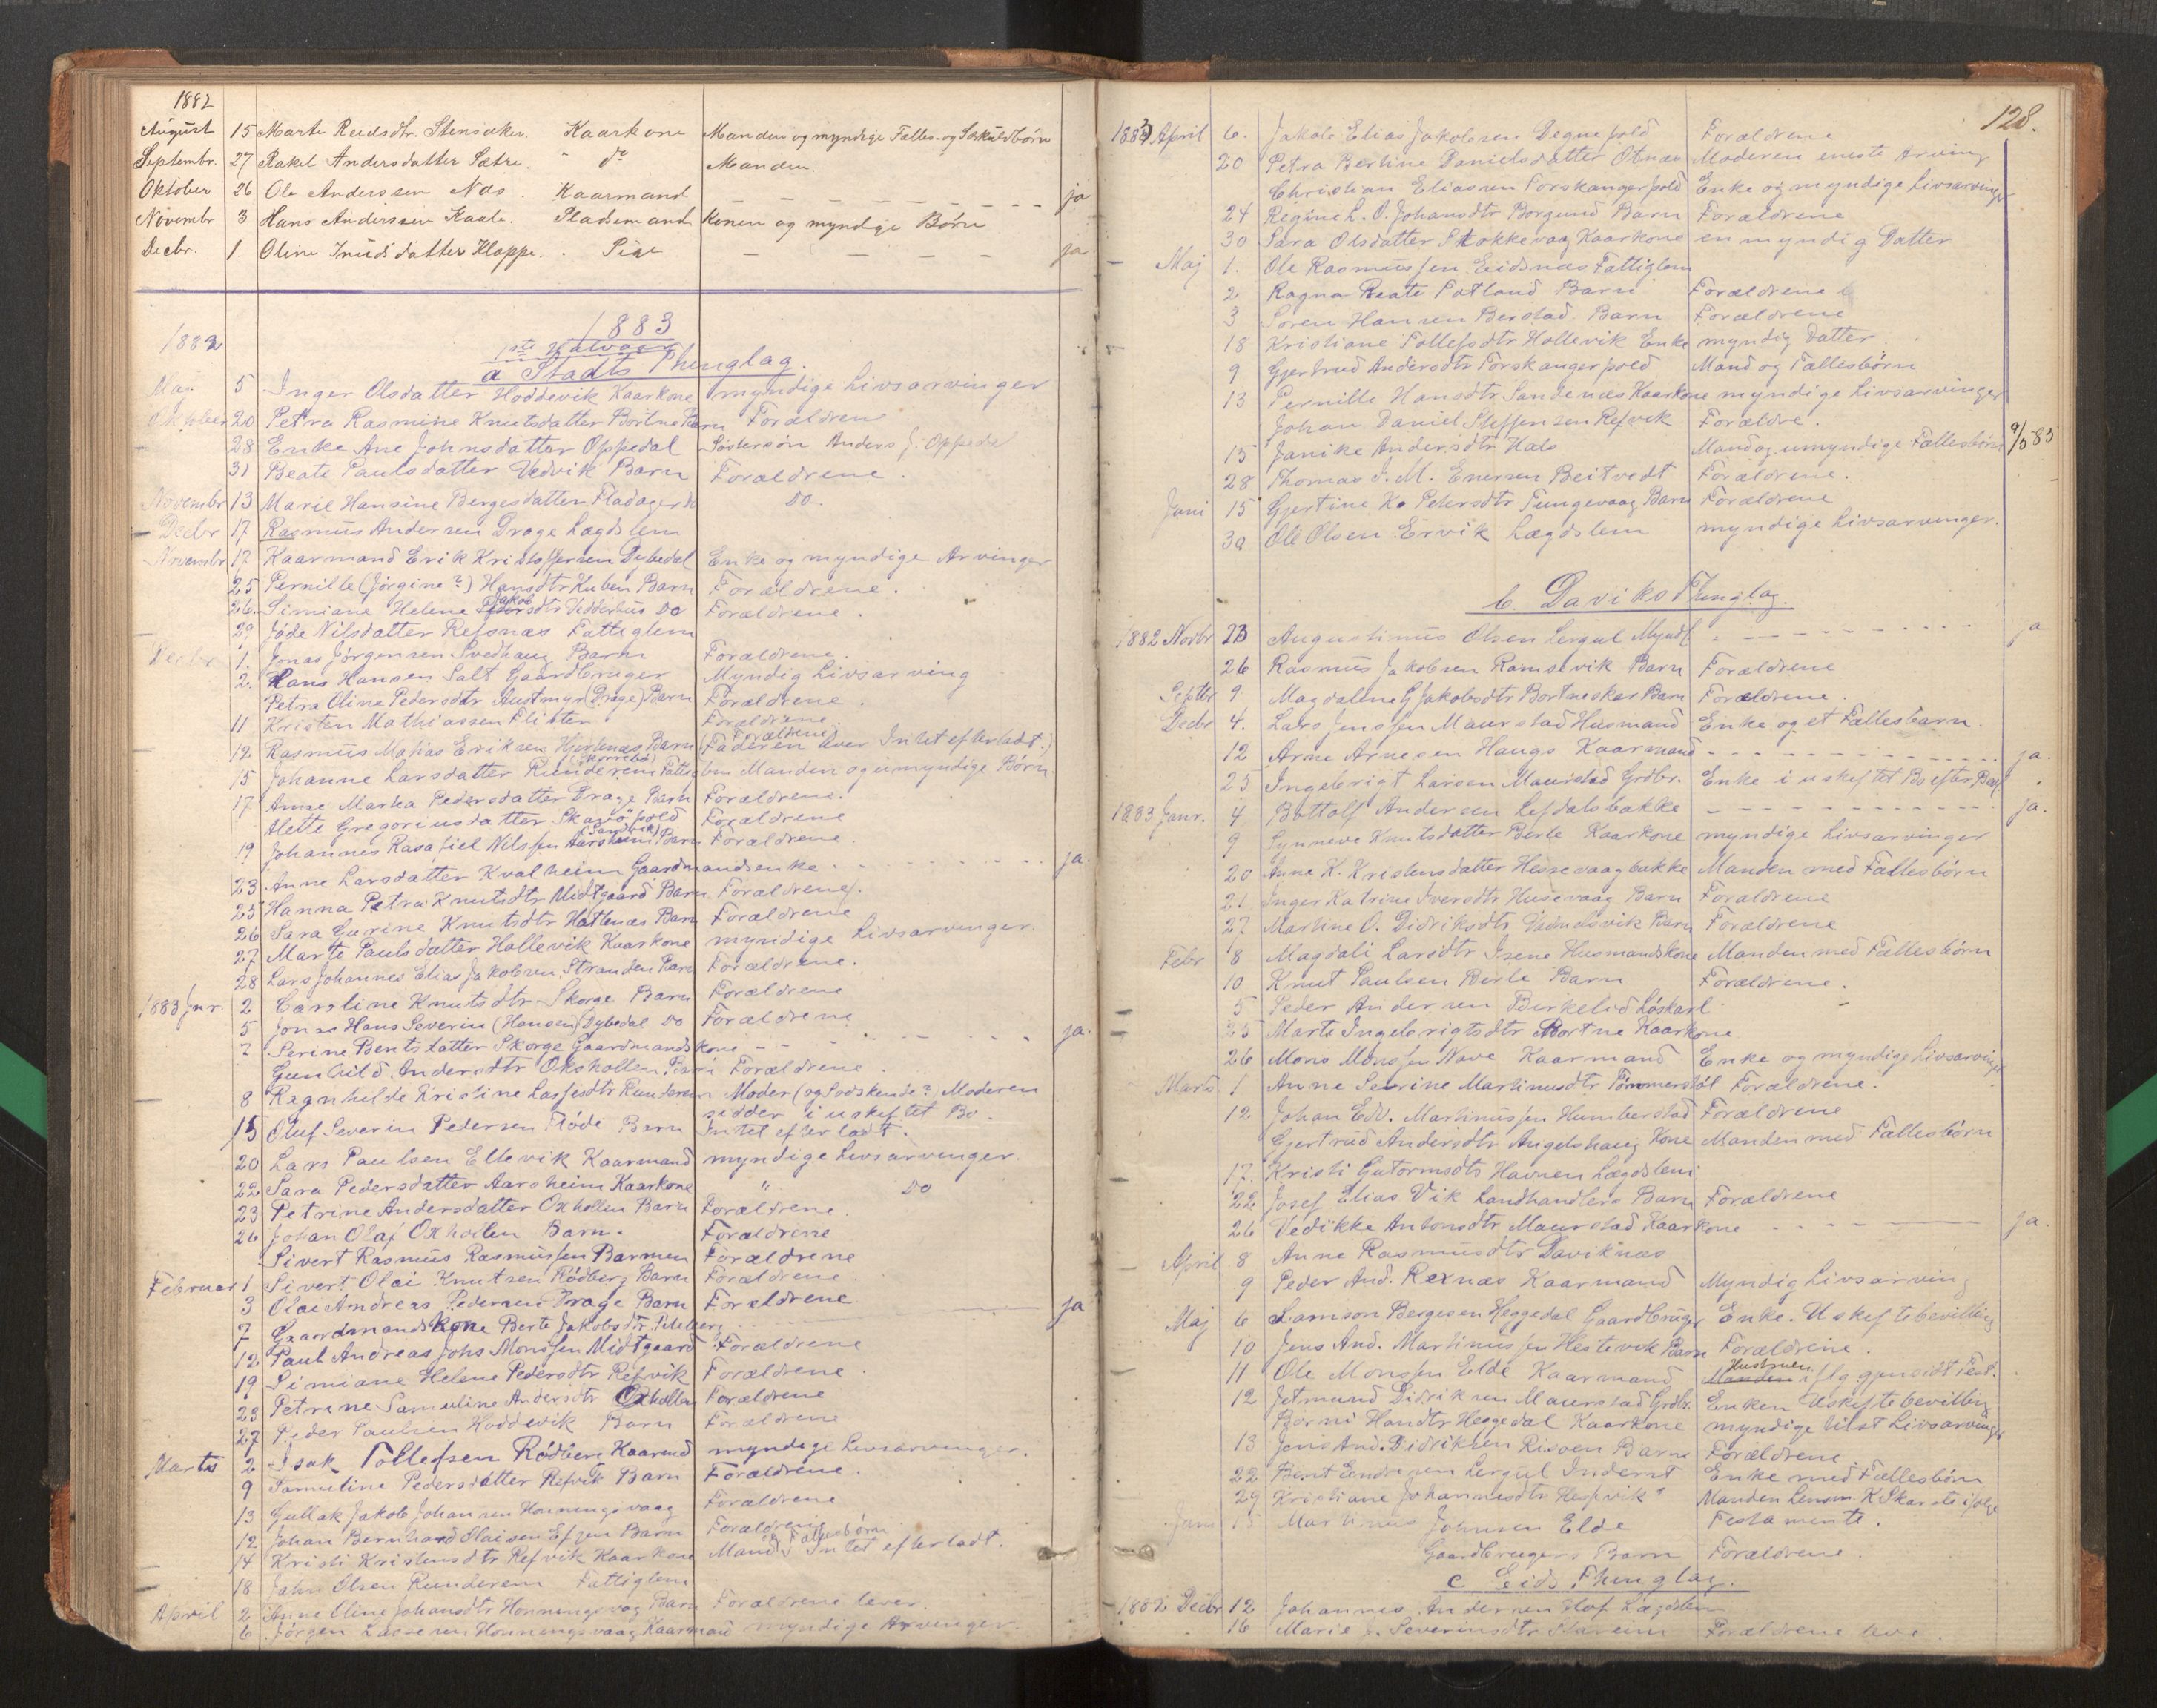 1882
August 15 Marte Reedsdtr. Stensaker. Kaarkone Manden og myndige Fælles- og Særkuldbørn
Septembr. 27 Rakel Andersdatter Sætre. " do Manden.
Oktober 26 Ole Anderssen Næs. Kaarmand — — — — ja
Novembr 3 Hans Anderssen Kaale. Pladsemand Konen og myndige Børn
Decbr. 1 Oline Knudsdatter Kloppe. Pige — — — — ja.
1883
1882
1ste Halvaar
a Stadts Thinglag.
Mai 5 Inger Olsdatter Hoddevik Kaarkone myndige Livsarvinger
Oktober 20 Petra Rasmine Knutsdatter Børtne Barn Forældrene
28 Enke Ane Johnsdatter Oppedal Søstersøn Anders J. Oppedal
31 Beate Paulsdatter Vedvik Barn Forældrene.
Novembr 13 Marie Hansine Bergesdatter Fladager Do.
Decbr 17 Rasmus Andersen Drage Lægdslem
Novembr 17 Kaarmand Erik Kristoffersen Dybedal Enke og myndige Arvinger
25 Pernille (Jørgine?) Hansdtr Kuben Barn Forældrene.
26. Simiane Helene Jakobsdtr Vedderhus Do Forældrene.
29 Jøde Nilsdatter Refsnæs Fattiglem
Decbr 1. Jonas Jørgensen Svedhaug Barn Forældrene.
2. Hans Hansen Salt Gaardbruger Myndig Livsarving
Petra Oline Pedersdtr Austmyr (Drage) Barn Forældrene.
11 Kristen Mathiassen Flister Forældrene.
12 Rasmus Mathias Eriksen Hjertenæs Barn Forældrene (Faderen lever Intet efterladt.)
15 Johanne Larsdatter Runderem Manden og umyndige Børn
17 Anne Marta Pedersdatter Drage Barn Forældrene.
Alette Gregoriusdatter Skavøpold Forældrene
19 Johannes Rasafiel Nilssen Aarsheim (Sandvik) Barn Forældrene
23 Anne Larsdatter Kvalheim Gaardmandsenke — — — ja.
25 Hanna Petra Knutsdtr Midtgaard Barn. Forældrene.
26 Sara Gurine Knutsdtr Hatlenæs Barn Forældrene
27 Marte Paulsdatter Hallevik Kaarkone myndige Livsarvinger.
28 Lars Johannes Elias Jakobsen Stranden Barn Forældrene.
1883 Jnr. 2 Caroline Knutsdtr Skorge Barn Forældrene
5 Jonse Hans Severin (Hansen) Dybedal Do Forældrene
7 Serine Bentsdatter Skorge Gaardmandskone — — — ja.
Gunhild Andersdtr Oksholten Barn Forældrene.
8 Ragnhilde Kristine Lassesdtr Runderem Moder (og Sødskende? Moderen
sidder i uskiftet Bo.
15 Oluf Severin Pedersen Flöde Barn Intet efterladt.
20 Lars Paulsen Ellevik Kaarmand myndige Livsarvinger.
22 Sara Pedersdatter Aarsheim Kaarkone " Do
23 Petrine Andersdatter Oxholten Barn Forældrene.
26 Johan Olaf Oxholten Barn. Forældrene
Sivert Rasmus Rasmussen Barmen Forældrene
Februar 1 Sivert Olai Knutsen Rødberg Barn Forældrene
3 Olai Andreas Pedersen Drage Barn Forældrene
7 Gaardmandskone Berte Jakobsdtr ja
12 Paul Andreas Johs Monsen Midtgaard Forældrene
19 Simiane Helene Pedersdtr Refvik Forældrene
23 Petrine Samuline Andersdtr Oxholten Forældrene
27 Peder Paulsen Hoddevik Barn Forældrene
Marts 2 Isak Tollefsen Rødberg Kaarmd myndige Livsarvinger.
9 Samuline Pedersdatter Refvik Barn Forældrene.
13 Gullak Jakob Johansen Honningsvaag Forældrene
12 Johan Bernhard Olaisen Barn Forældrene
14 Kristi Kristensdtr Refvik Kaarkone Mand & Fællesbørn Intet efterladt.
18 Jahn Olsen Runderem Fattiglem
April 2 Anne Oline Johansdtr Honningsvag Barn Forældrene lever.
6 Jørgen Lassesen Honningsvaag Kaarmand myndige Arvinger.
128.
1883 April 6. Jakob Elias Jakobsen Degnepold Forældrene
20 Petra Bertine Danielsdatter Otnæs Moderen eneste Arving
Christian Eliassen Torskangerpold Enke og myndige Livsarvinger
24 Regine L. O. Johansdtr Borgund Barn Forældrene
30 Sara Olsdatter Stokkevaag Kaarkone en myndig Datter
Maj 1. Ole Rasmussen Eidsnæs Fattiglem
2 Ragna Beate Totland Barn Forældrene
3 Søren Hansen Berstad. Barn Forældrene
18 Kristiane Tollefsdtr Hallevik Enke myndig Datter.
9 Gjertrud Andersdtr Torskangerpold Mand og Fællesbørn
13 Pernille Hansdtr Sandenæs Kaarkone myndige Livsarvinger
Johan Daniel Steffensen Refvik Forældre.
15 Janike Andersdtr Hals Mand og umyndige Fællesbørn 9/5 83
28 Thomas J. M. Enersen Beitvedt Forældrene.
Juni 15 Gjertine K. Petersdtr Tungevaag Barn Forældrene
30 Ole Olsen Ervik Lægdslem myndige Livsarvinger.
b. Daviks Thinglag.
1882 Novbr 23 Augustinus Olsen Lergul Myndl — — — ja
26 Rasmus Jakobsen Ramsevik Barn Forældrene
Septbr 9 Magdalene G Jakobsdtr Bortneskar Barn Forældrene.
Decbr 4. Lars Jenssen Maurstad Husmand Enke og et Fællesbarn.
12 Arne Arnesen Haugs Kaarmand — — — ja.
23 Ingebrigt Larsen Maurstad Grdbr. Enke i uskiftet Bo efter
1883 Janr. 4 Bottolf Andersen Lefdalsbakke — — — ja.
9 Synneve Knutsdatter Berle Kaarkone myndige Livsarvinger
20 Anne K. Kristensdatter Hessevaagbakke Manden med Fællesbørn
21 Inger Katrine Iversdtr Husevaag Barn Forældrene
27 Martine O. Didriksdtr Vedmelsvik Barn Forældrene
Febr 8 Magdali Larsdtr Isene Husmandskone Manden med Fællesbørn
10 Knut Paulsen Berle Barn Forældrene.
5 Peder Andersen Birkelid Løskarl
25 Marte Ingebrigtsdtr Bortne Kaarkone
26 Mons Monssen Nave Kaarmand Enke og myndige Livsarvinger
Marts 1 Anne Serine Martinusdtr Tømmerstøl Forældrene.
12 Johan Edv. Martinussen Humberstad Forældrene
Gjertrud Andersdtr Angelshaug Kone Manden med Fællesbørn
17. Kristi Gutormsdtr Havnen Lægdslem
22 Josef Elias Vik Landhandlers Barn Forældrene
26 Vedikke Antonsdtr Maurstad Kaarkone — — — ja.
April 8 Anne Rasmusdtr Daviknæs
9 Peder And. Rexnæs Kaarmand Myndig Livsarving
Maj 6 Samson Bergesen Heggedal Gaardbruger Enke. Uskiftebevilling
10 Jens And. Martinussen Hestevik Barn Forældrene.
11 Ole Monssen Elde Kaarmand Manden Hustruen iflg gjensidt Test.
12 Jetmund Didriksen Maurstad Grdbr. Enken Uskiftebevilling
Børni Handtr Heggedal Kaarkone myndige Livsarvinger
13 Jens And. Didriksen Risøen Barn Forældrene
22 Bent Endresen Lergul Inderst Enke med Fællesbørn
29 Kristiane Johannesdtr Hessvik Manden Lensm. K Skarstei ifølge
Testamente.
Juni 15 Martinus Johnsen Elde
Gaardbrugers Barn Forældrene.
c Eids Thinglag.
1882 Decbr 12 Johannes Andersen Hof Lægdslem
16 Marie Severinsdtr Forældrene leve.